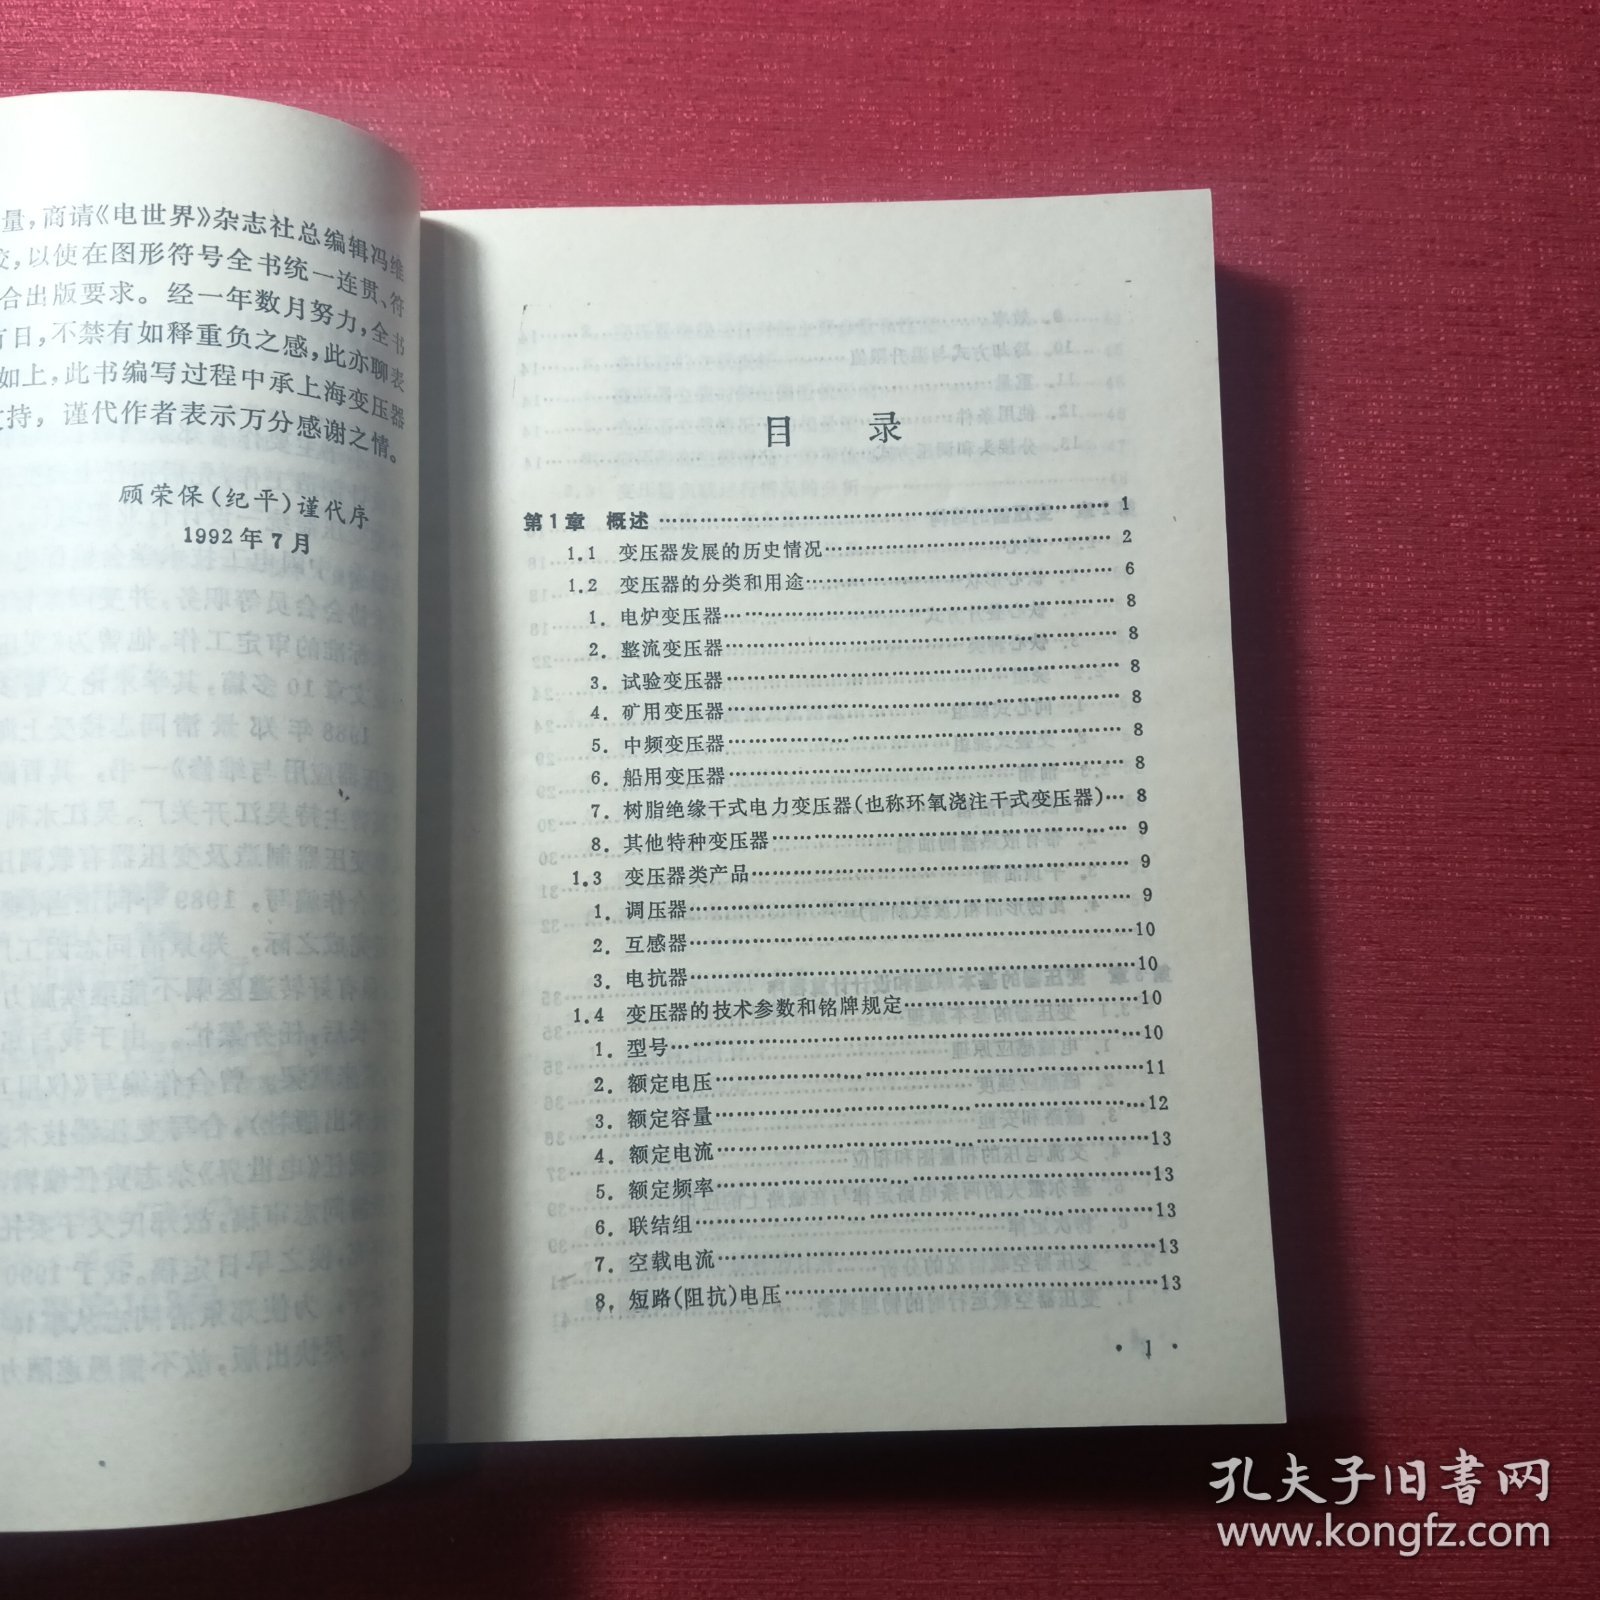 量，商请《电世界》杂志社总编辑冯维
校，以使在图形符号全书统一连贯、符
合出版要求。经一年数月努力，全书
有日，不禁有如释重负之感，此亦聊表
如上，此书编写过程中承上海变压器
支持，谨代作者表示万分感谢之情。
顾荣保（纪平）谨代序
1992年7月
目　录
第1章　概述……1
1.1　变压器发展的历史情况……2
1.2　变压器的分类和用途……6
1. 电炉变压器……8
2. 整流变压器……8
3. 试验变压器……8
4. 矿用变压器……8
5. 中频变压器……8
6. 船用变压器……8
7. 树脂绝缘干式电力变压器（也称环氧浇注干式变压器）…8
8. 其他特种变压器……9
1.3　变压器类产品……9
1. 调压器……9
2. 互感器……10
3. 电抗器……10
1.4　变压器的技术参数和铭牌规定……10
1. 型号……10
2. 额定电压……11
3. 额定容量……12
4. 额定电流……13
5. 额定频率……13
6. 联结组……13
7. 空载电流……13
8. 短路（阻抗）电压……13
· 1 ·
孔夫子旧书网
www.kongfz.com